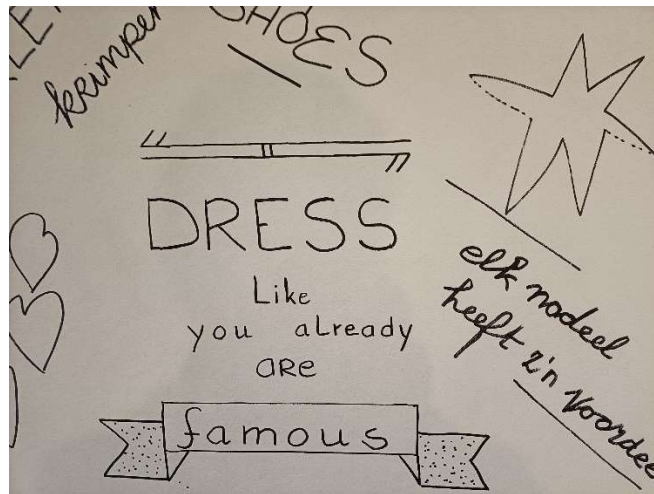 krimpen
SHOES
DRESS
Like
you already
are
famous
elk nadeel
heeft z'n voordee